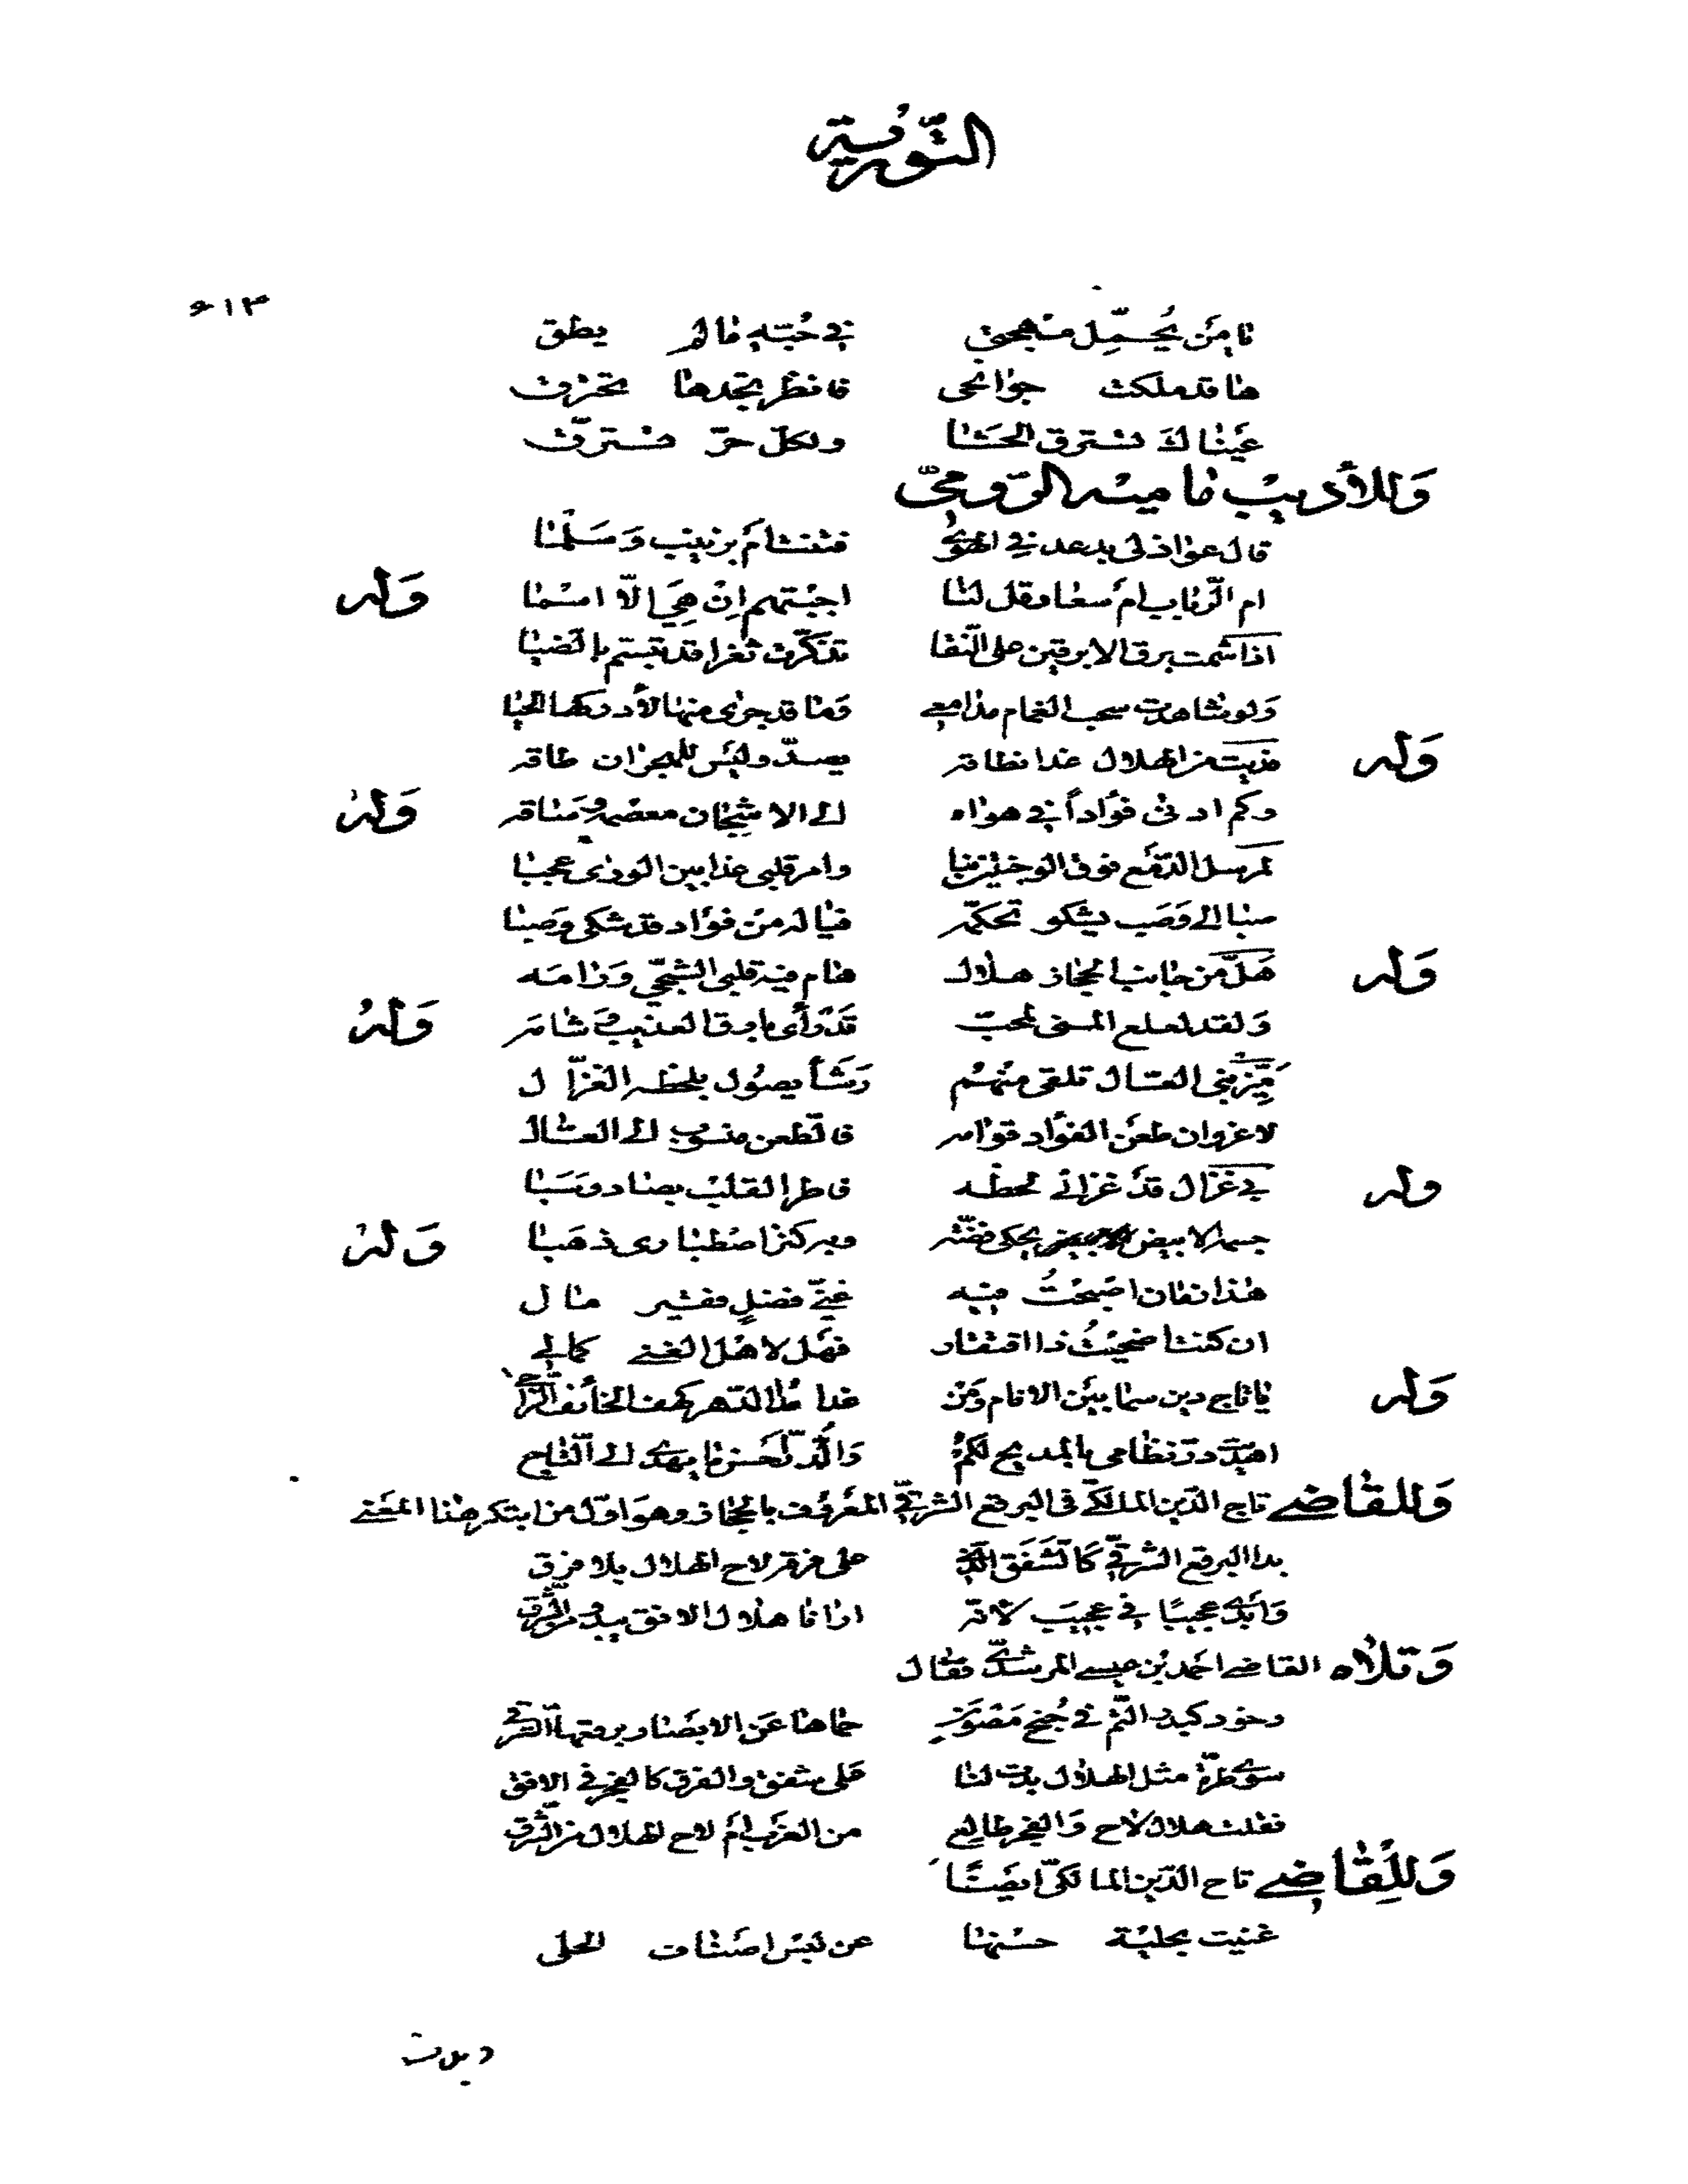 التّورية
٦١٣
يا مَن يُحمّل مهجتي في حُبّه ما لم يطق
ها قد ملكت جوانحي فانظر تجدها تحترق
عَيناكَ تسترق الحشا ولكلّ حرّ تسترق
وَللأديب مامية الرّومِيّ
قال عواذلى بدعد في الهوى فتنت أم بزينب وَسَلْمَا
ام الرّباب أم سعاد قل لنا اجبتهم إن هِيَ إلّا اسما وَله
اذا شمت برق الابرقين على النّقا تذكّرت ثغرا قد تبسم بالضيا
وَلو شاهدت سحب الغمام مدامعى وَما قد جرى منها لأدركها الحيا
وَله فديت من الهلال غدا نطاقه يصدّ وليس للهجران طاقه
وكم ادنى فؤاداً في هواه الى الاشجان معصمه وَساقه وَلهُ
لمرسل الدّمع فوق الوجنتين نبا وامر قلبى غدا بين الورى عجبا
صبا الى وَصَب يشكو تحكمه فيا له من فؤاد قد شكى وَصبا
وَله هَلّ من جانب الحجاز هلال هام فيه قلبى الشجيّ وَرامه
وَلقد لعلع المنى لمحبّ قَد رَأى بارق العذيب وَشامه وَلهُ
رَشَأ يصُول بلحظه الغزّال
لا غروان طعن الفؤاد قوامه فالطعن منسوب الى العسّال
وله بي غزال قدْ غزانى لحظه فاطر القلب بصاد وَسَبا
جسمه الابيض يحكى فضّة وبه كنز اصطبارى ذهَبا وَلهُ
هٰذا زمان اصْبحتُ فيه غنيّ فضلٍ فقير مال
ان كنت اضحيتُ ذا افتقار فهَل لاهْل الغنى كمالى
وَله يا تاج دين سما بين الانام وَمن غدا لذا الدّهر كهف الخائف الرّاجى
اهديت درّ نظامى بالمديح لكمْ وَالدّرّ أحسن ما يهدى الى التّاج
وَللقاضى تاج الدّين المالكيّ فى البرقع الشرقيّ المعروف بالحجاز وهوَ اوّل من ابتكر هٰذا المعنى
بدا البرقع الشرقيّ كالشَفَق الّذى على فرقه لاح الهلال بلا فرق
وَأبدى عجيبًا في عجيب لانه ارانا هلال الافق يبدو من الشّرق
وَتلاه القاضى احمد بن عيسى المرشديّ فقال
وخود كبدر التّم في جُنح مَصُونة حماها عَن الابصار برقعها الشّرقى
سوى طرّة مثل الهلال بدت لنا عَلى شفق والفرق كالفجر في الافق
فقلت هلال لاح وَالفجر طالع من الغرب أم لاح الهلال من الشّرق
وَللقاضى تاج الدّين المالكيّ أيضًا
غنيت بحلية حسنها عن لبس اصناف الحلى
وبدت